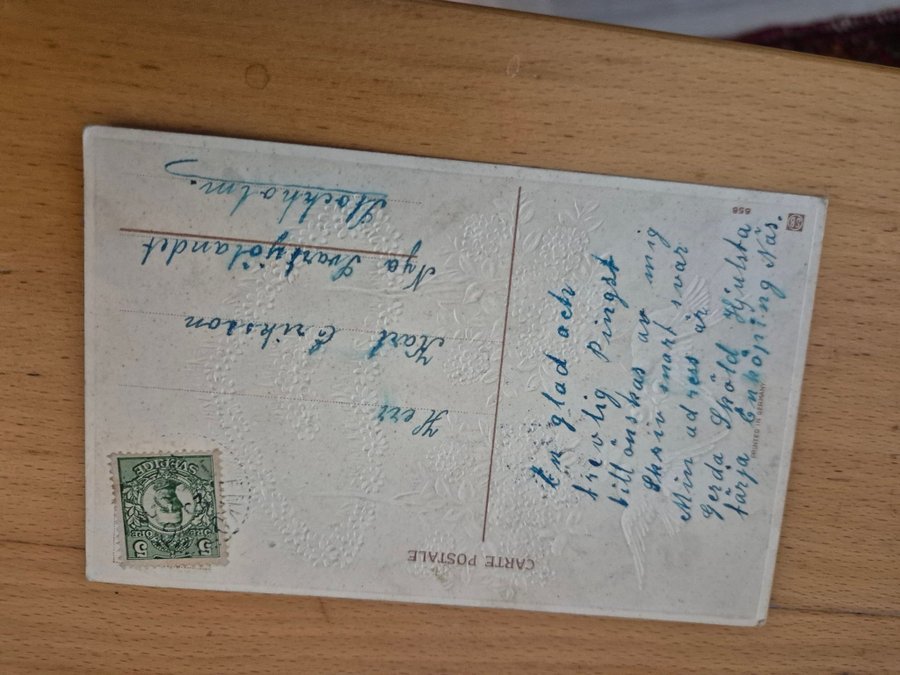 CARTE POSTALE
En glad och
trevlig Pingst
tillönskas av mig
Skriv snart svar
Min adress är
Gerda Sköld Hjulsta
färja Enköping Näs.
Herr
Karl Eriksson
Nya Svartsjölandet
Stockholm.
5 5
SVERIGE
656
PRINTED IN GERMANY